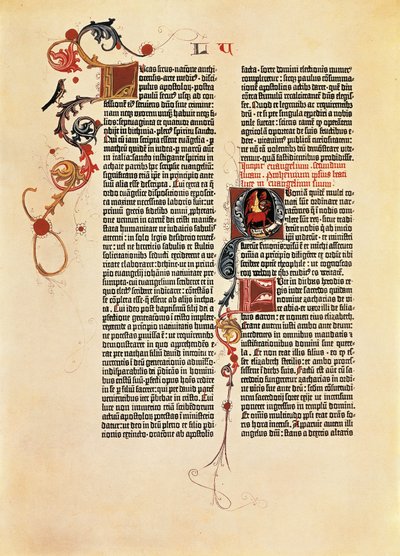 L U
Lucas sirus·natione anthi-
ocensis·arte medicꝰ·disci-
pulus apostoloꝝ·postea
paulū secutꝰ usqꝫ ad con-
fessionē eiꝰ serviens dño sine crimine:
nam neqꝫ uxorem unquā habuit neqꝫ fi-
lios: septuaginta et quatuor annorum
obijt in bithinia·plenꝰ spiritu sancto.
Qui cū iam scripta essent evāgelia·ꝑ
matheū quidē in iudea·ꝑ marcū autē
in italia: sancto instigante spiritu in
achaie partibꝰ hoc scripsit evangeliū:
significans etiā ip̄e in principio ante
suū alia esse descripta. Cui extra ea q̄
ordo evāgelice dispositionis exposcit
ea maxime necessitas laboris fuit: ut
primū grecis fidelibꝰ omni ꝓphetati-
one venturi in carnē dei cristi manifesta
humanitate ne iudaicis fabulis
attenti: in solo legis desiderio tenerē-
tur: vel ne hereticis fabulis et stultis
solicitationibꝰ seducti excideret a ve-
ritate elaboraret: dehinc ut in princi-
pio evangelij iohānis nativitate pre-
sumpta·cui evangelium scriberet et in
quo electꝰ scriberet indicaret: cōtestās ī
se cōpleta esse·q̄ essent ab alijs incho-
ata. Cui ideo post baptismū filij dei a
ꝑfectione generationis ī cristo implete·
repetende a principio nativitatis humane
potestas ꝑmissa ē: ut requirentibus
demonstraret in quo apprehendēs
erat ꝑ nathan filiū david introitu re-
currentis ī deū generationis admisso·
indisparabilis dei p̄dicās in hominibus
cristū suū·ꝑfecti opus hoīs redire
in se ꝑ filiū faceret: qui ꝑ david patrē
venientibus iter p̄bebat in cristo. Cui
luce non immerito etiā scribendorum
actuū apostolorū potestas ī ministerio
datur: ut deo in deū pleno et filio ꝓdi-
tionis extincto·oratione ab apostolis
facta·sorte domini electionis numerus
compleretur: sicqꝫ paulus cōsumma-
tionē apostolicis actibꝰ daret·quē diu
cōtra stimulū recalcitrantē dn̄s elegis-
set. Quod et legentibꝰ ac requirentibꝰ
deū·et si ꝑ singula expediri a nobis
utile fuerat: sciens tamē ꝙ operantem
agricolā oporteat de suis fructibus e-
dere·vitavimꝰ publicā curiositatem:
ne nō tā volentibꝰ deū demōstrare vide-
remur·quā fastidientibus prodidisse.
Incipit evangelium secundum
lucam. Prohemium ipsius beati
luce in evangelium suum.
Quoniā quidē multi co-
nati sunt ordinare nar-
rationes q̄ ī nobis com-
plete sūt reꝝ·sicut tradi-
derūt nobis q̄ ab initio
ip̄i viderūt·et ministri
fuerūt sermonis: visū ē et michi assecuto
oīa a principio diligēter ex ordīe tibi
scribere optime theophile: ut cognoscas
eoꝝ verboꝝ de q̄bꝰ eruditꝰ es veritatē.
Fuit in diebus herodis re-
gis iudee sacerdos quidam
nomine zacharias de vi-
ce abia·et uxor illi de filia-
bus aaron: et nomen eius elizabeth.
Erant autem iusti ambo ante deum:
incedentes in omnibus mandatis et
iustificationibus domini sine quere-
la. Et non erat illis filius·eo ꝙ es-
set elizabeth sterilis: et ambo proces-
sissent ī diebꝰ suis. Factū est autē cū sa-
cerdotio fungeretur zacharias in ordi-
ne vicis sue ante deū: scdm cōsuetudi-
nem sacerdotij sorte exijt ut incensum
poneret ingressus in templū domini.
Et omīs multitudo ꝑpli erat orās fo-
ris hora incensi. Apparuit autem illi
angelus dn̄i: stans a dextris altaris